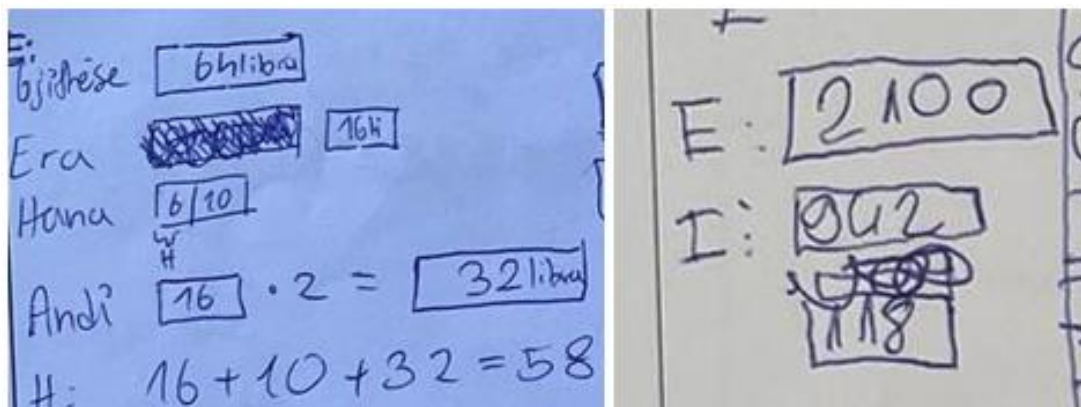 Gjithëse 64libra
Era 16li
Hana 6/10
H
Andi 16 · 2 = 32libra
H: 16+10+32=58
E: 2100
I: 942
118